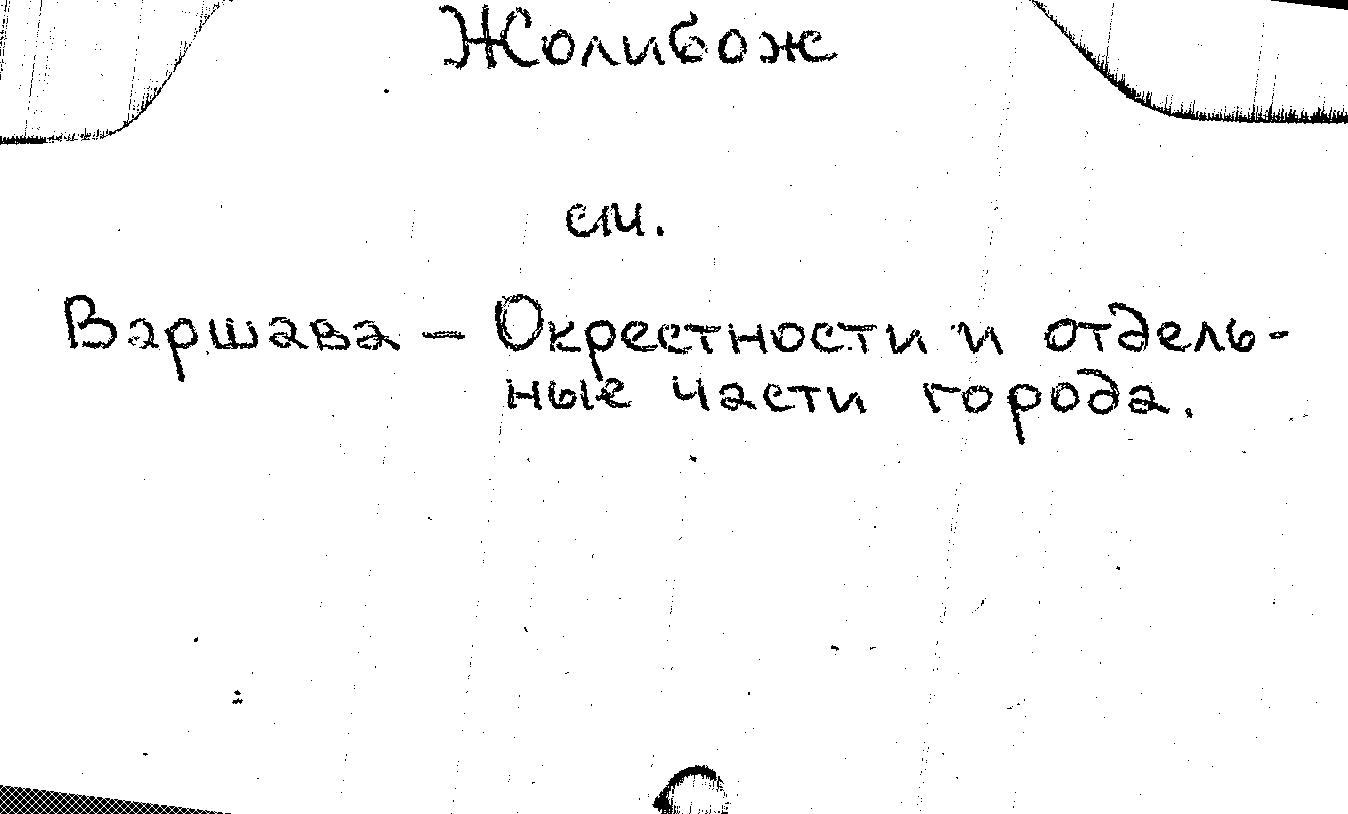 Жолибож
см.
Варшава – Окрестности и отдель-
ные части города.